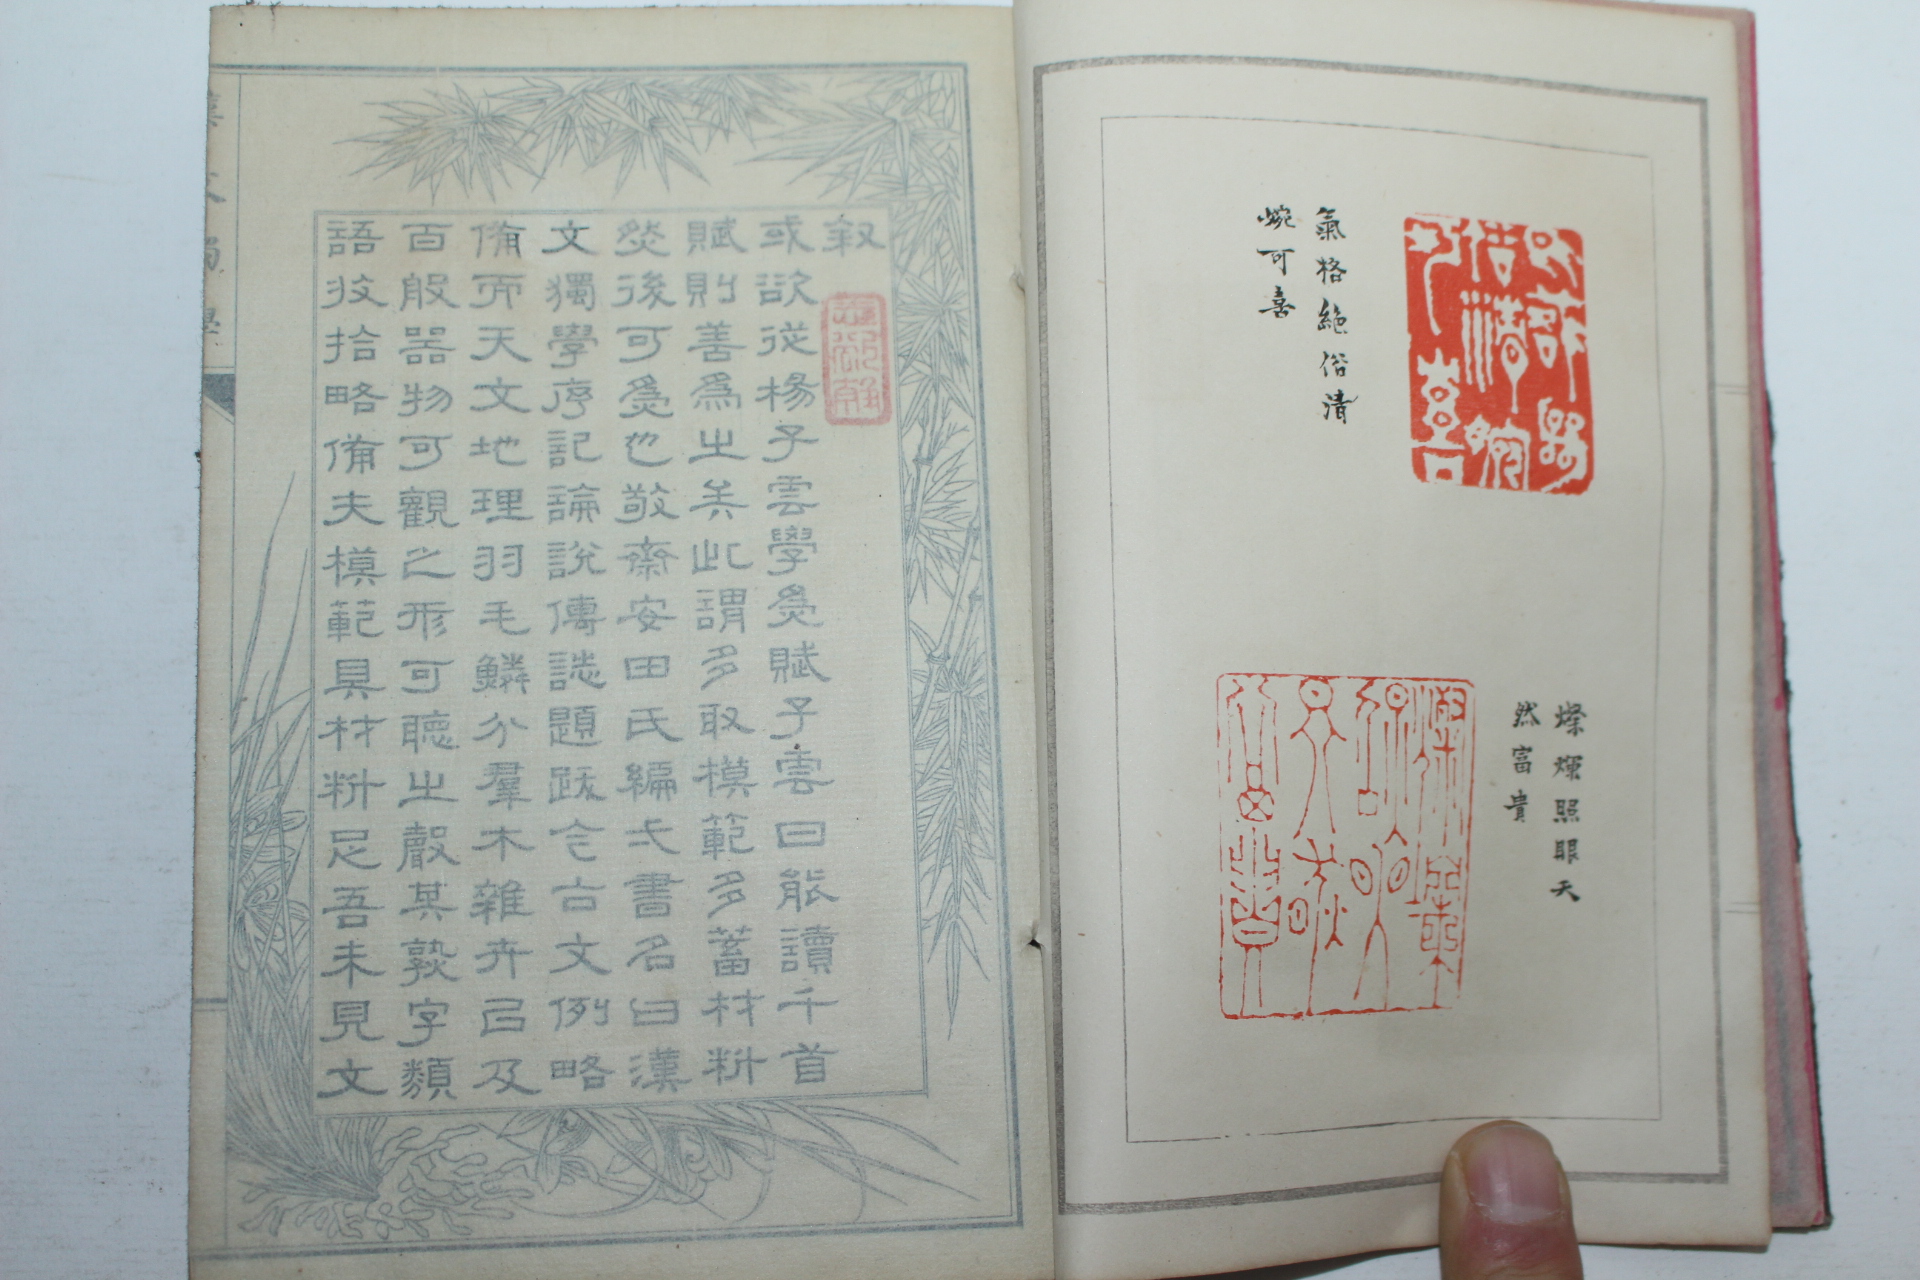 氣格絶俗清
婉可喜
燦爛照眼天
然富貴
叙
或欲從楊子雲學爲賦子雲曰能讀千首
賦則善爲之矣此謂多取模範多蓄材料
然後可爲也敬齋安田氏編之書名曰漢
文獨學序記論說傳誌題跋之古文例略
備而天文地理羽毛鱗介羣木雜卉以及
百般器物可觀之形可聽之聲其熟字類
語收拾略備夫模範具材料足吾未見文